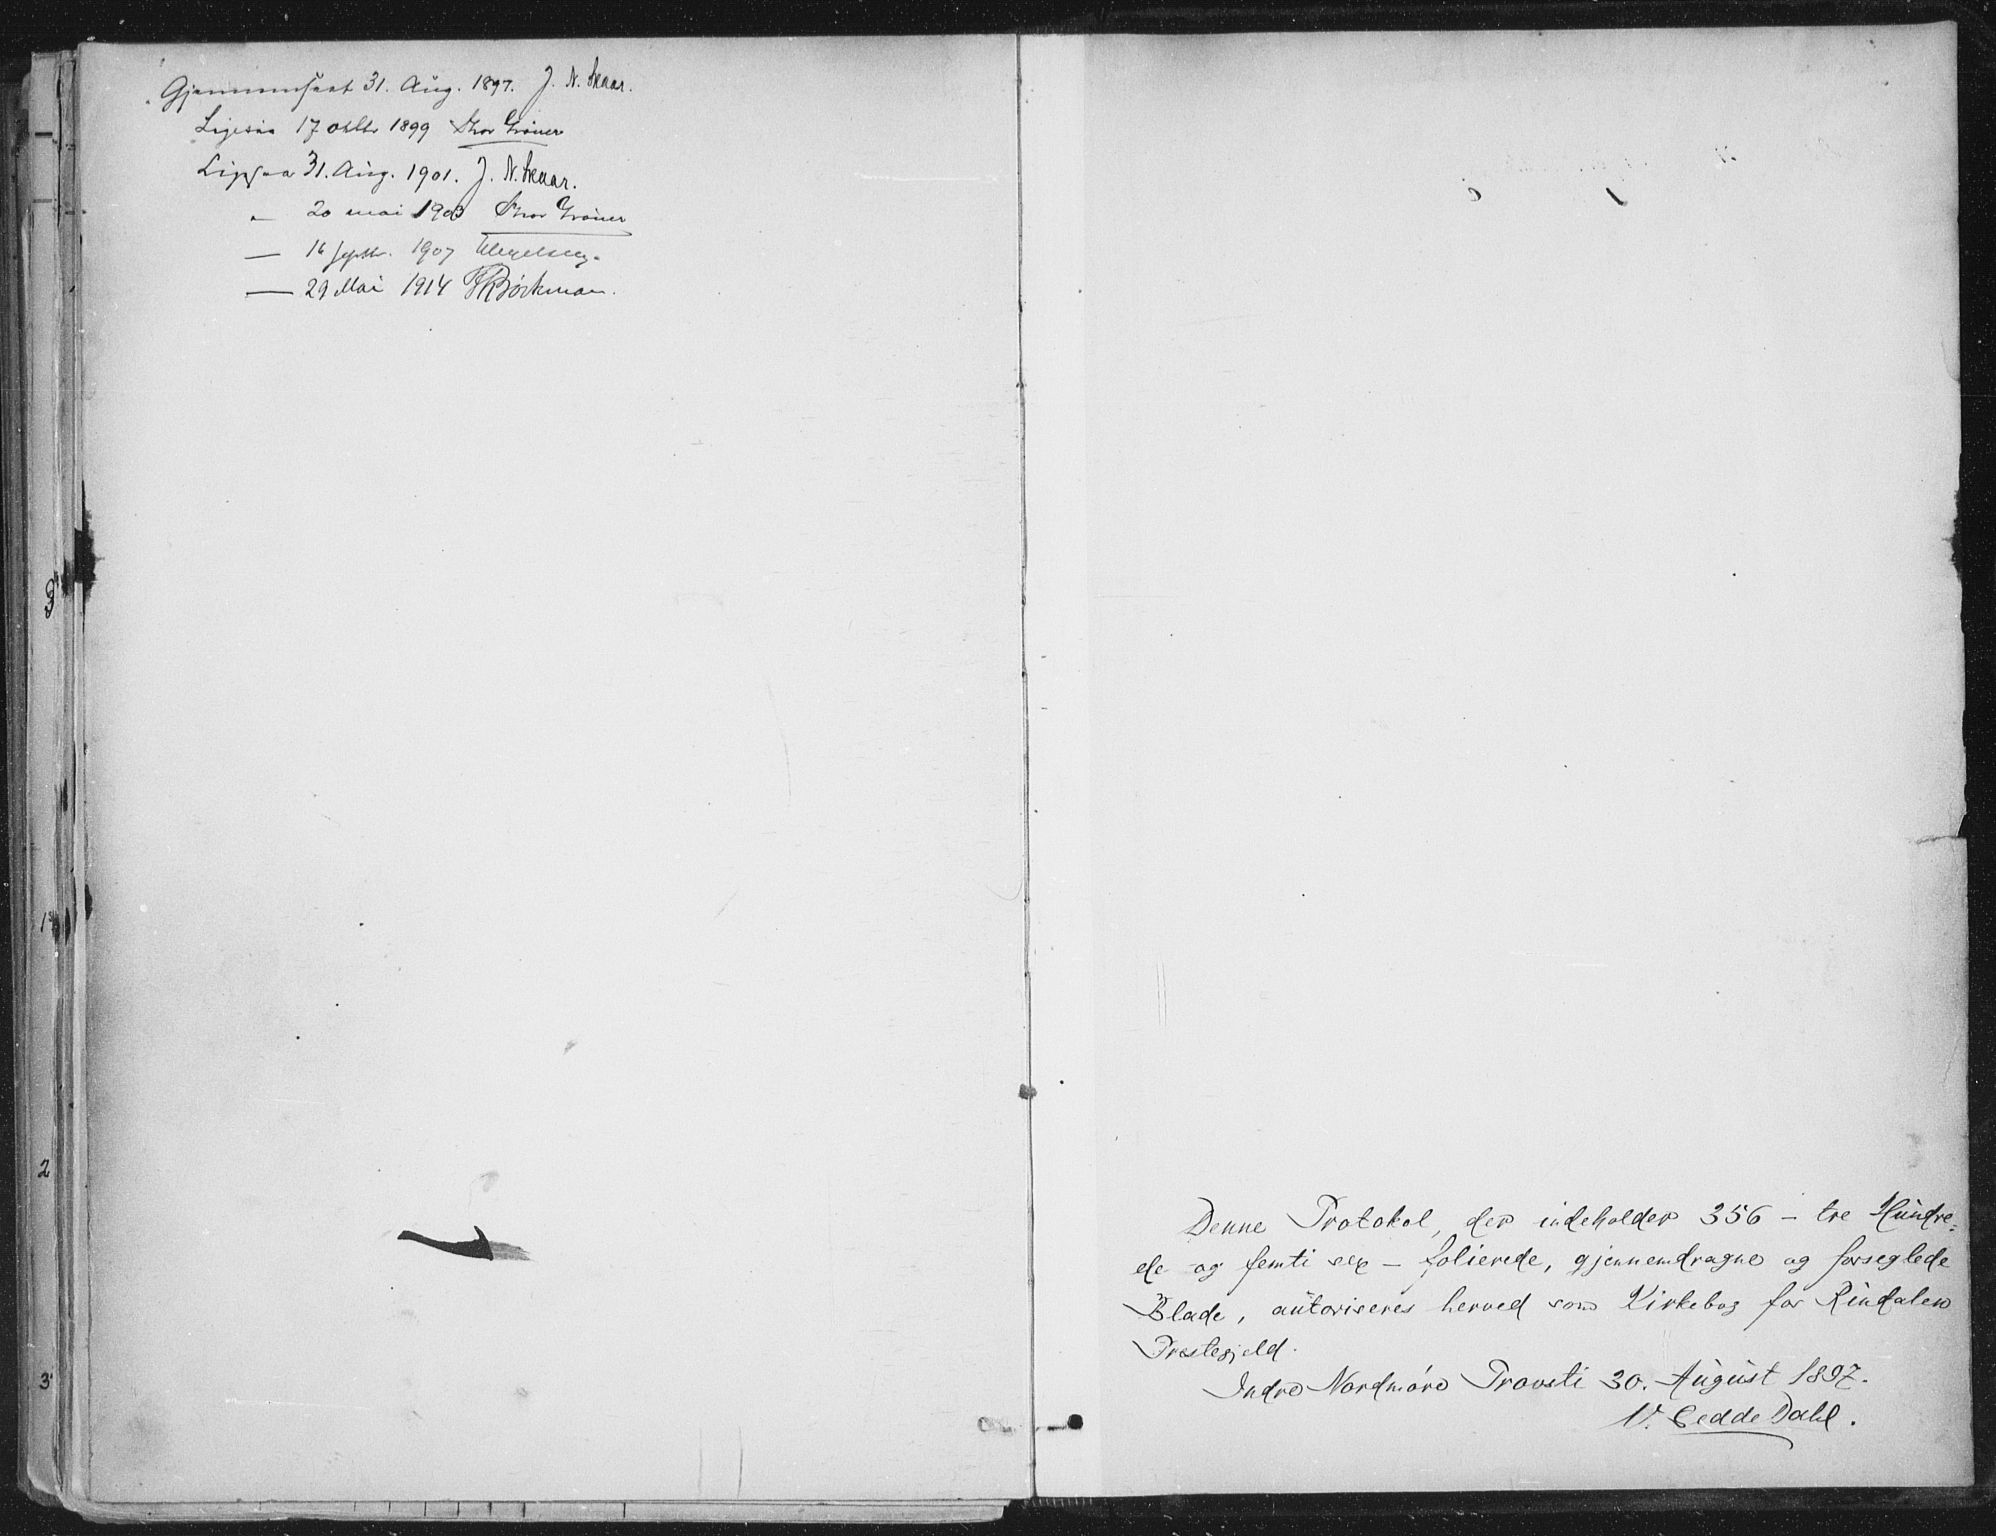 Gjennemseet 31. Aug. 1897. J. N. Skaar.
Ligesaa 17 oktbr 1899 Thor Grøner
Ligesaa 31. Aug. 1901. J. N. Skaar.
" 20 mai 1903 Thor Grøner
— 16 septbr. 1907
— 29 Mai 1914 Bøckman.
3
1
2
3
Denne Protokol, der indeholder 356 – tre Hundre-
de og femti sex – folierede, gjennemdragne og forseglede
Blade, autoriseres herved som Kirkebog for Rindalen
Prestegjeld.
Indre Nordmøre Provsti 30. August 1897.
N. Gedde Dahl.